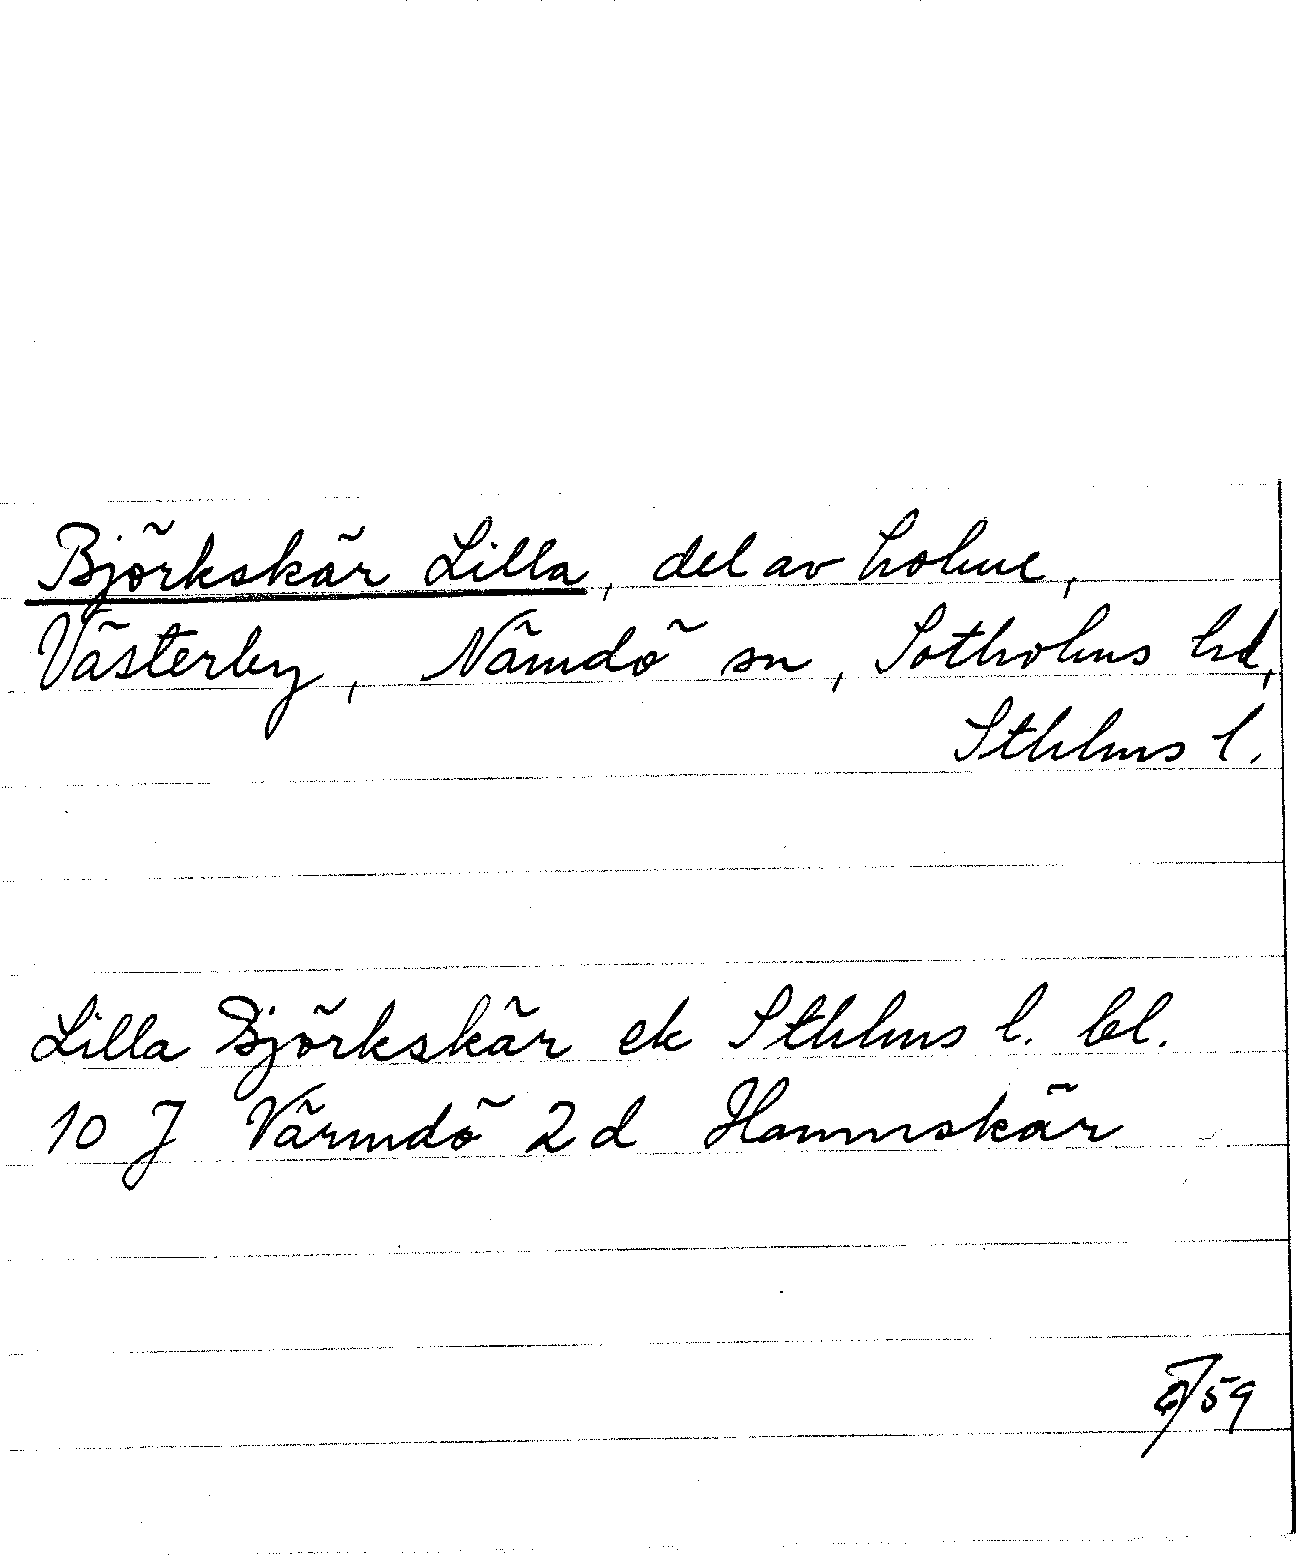 Björkskär Lilla, del av holme,
Västerby, Nämdö sn, Sotholms hd,
Sthlms l.
Lilla Björkskär ek Sthlms l. bl.
10 J Värmdö 2d Hammskär
59